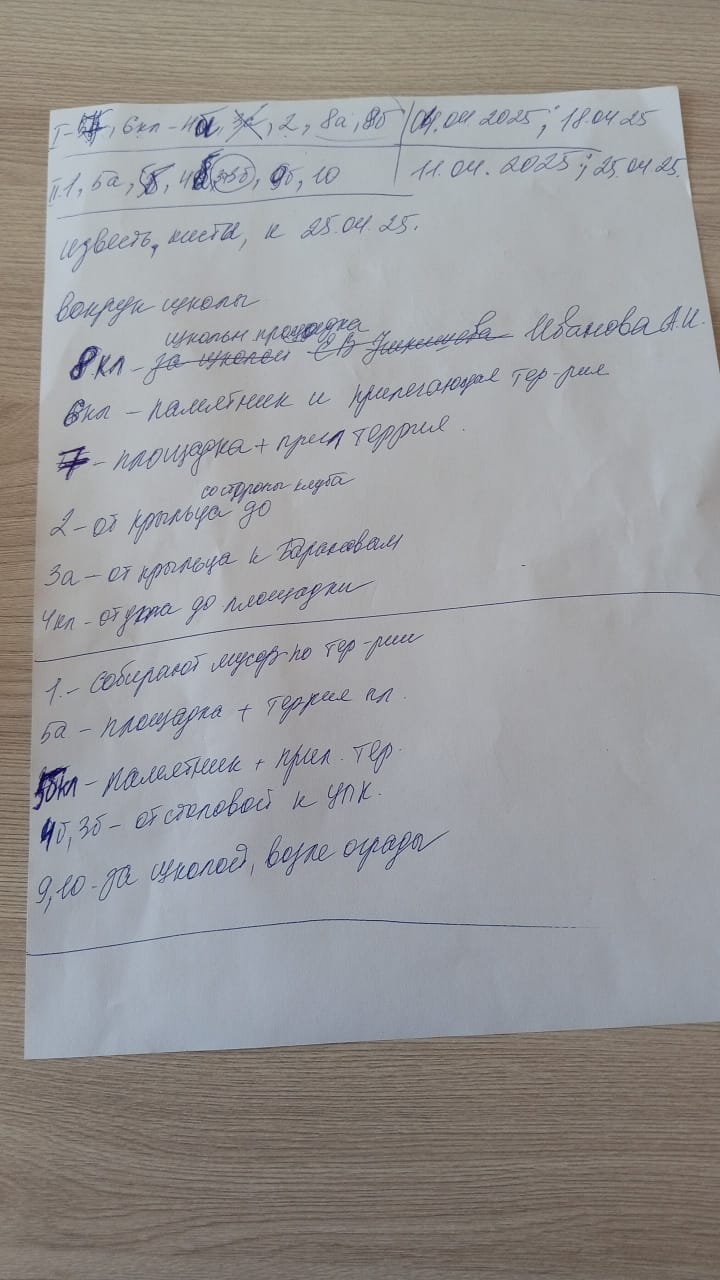 I - 6кл - 4а, 3а, 2, 8а, 8б 04.04.2025; 18.04.25
II. 1, 5а, 5б, 4б, 3б, 9б, 10 11.04.2025; 25.04.25.
известь, кисты, к 25.04.25.
вокрук школы
школьн площадка
8кл - за школой Иванова А.И.
6кл - памятник и прилегающая тер-рия
7 - площадка + прил террия.
со стороны клуба
2 - от крыльца до
3а - от крыльца к
4кл - от угла до площадки
1. - собирают мусор по тер-рии
5а - площадка + террия пл.
5бкл - памятник + прил. тер.
4б, 3б - от столовой к УПК.
9, 10 - за школой, возле ограды